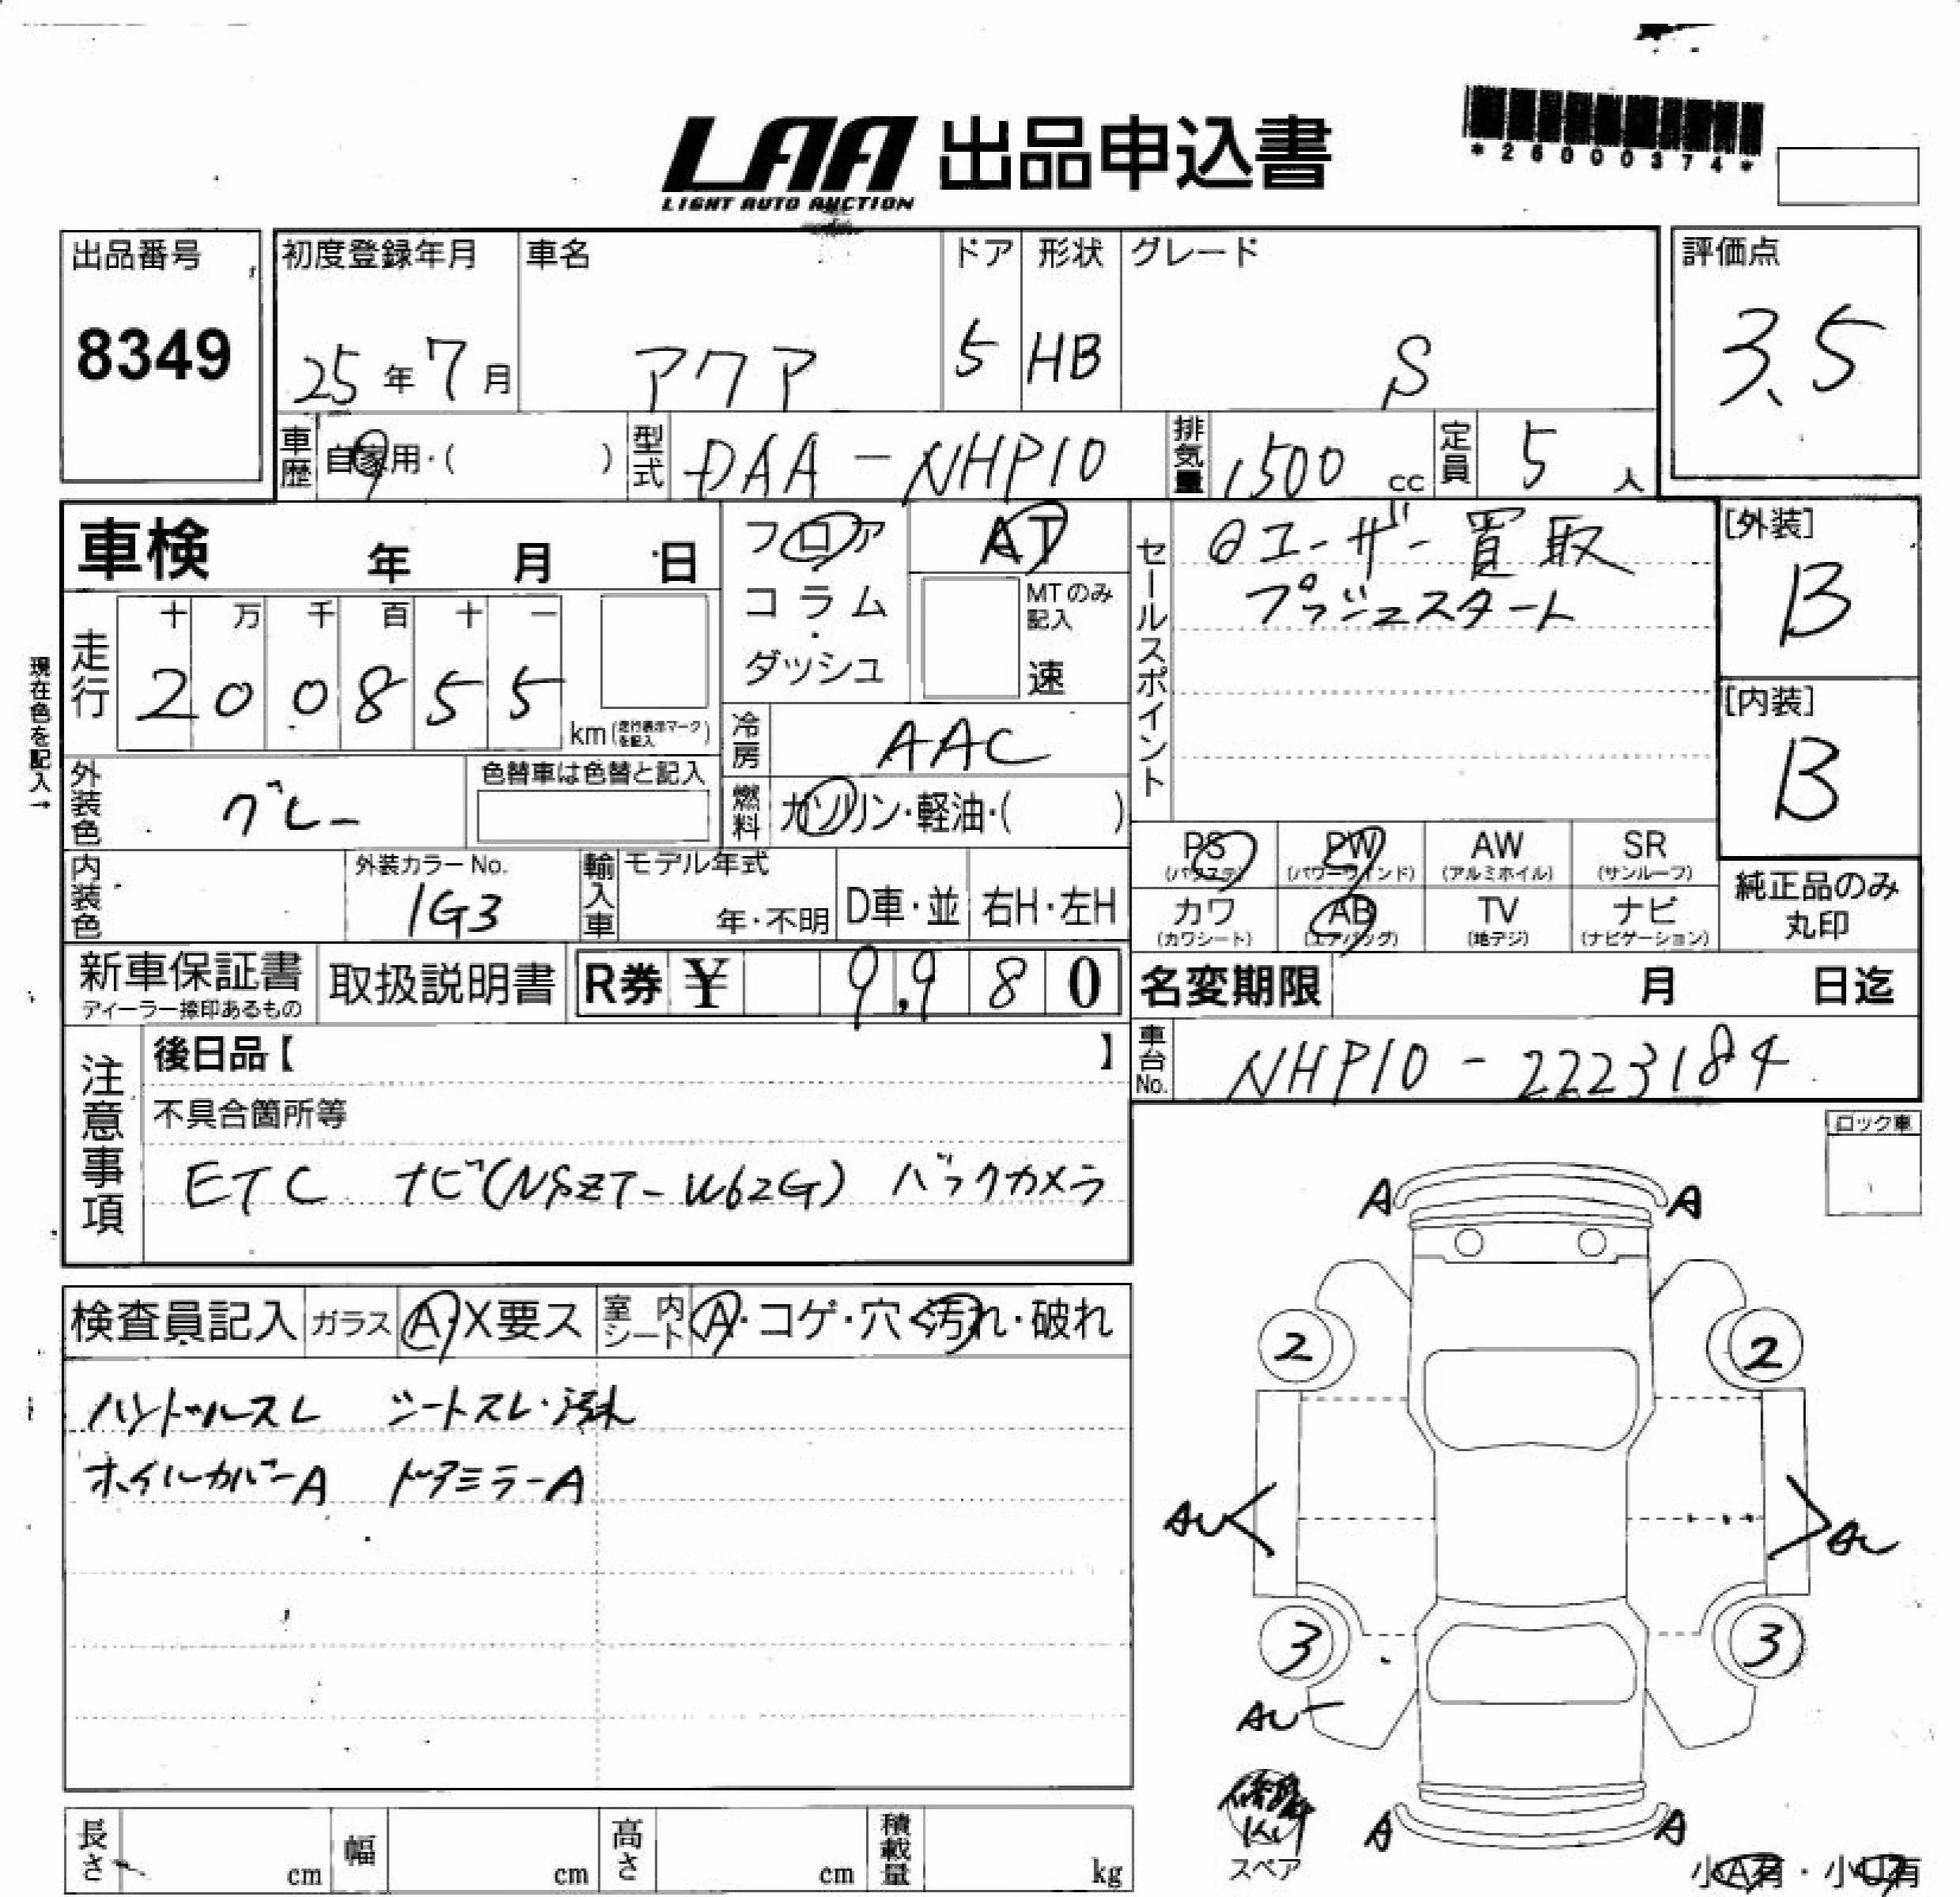 LAA 出品申込書
LIGHT AUTO AUCTION
*26000374*
出品番号
8349
初度登録年月
25年7月
車名
アクア
ドア
5
形状
HB
グレード
S
評価点
3.5
車歴
自家用・( )
型式
DAA-NHP10
排気量
1500 cc
定員
5 人
車検 年 月 日
フロア
コラム
・
ダッシュ
AT
MTのみ記入
速
セールスポイント
◎ユーザー買取
プッシュスタート
[外装]
B
[内装]
B
現在色を記入→
走行
十 万 千 百 十 一
2 0 0 8 5 5
km (走行表示マークを記入)
冷房
AAC
外装色
グレー
色替車は色替と記入
燃料
ガソリン・軽油・( )
PS (パワステ)
PW (パワーウインド)
AW (アルミホイル)
SR (サンルーフ)
カワ (カワシート)
AB (エアバッグ)
TV (地デジ)
ナビ (ナビゲーション)
純正品のみ
丸印
内装色
外装カラーNo.
1G3
輸入車
モデル年式
年・不明
D車・並
右H・左H
新車保証書
ディーラー捺印あるもの
取扱説明書
R券 ¥ 9,980
名変期限 月 日迄
車台No.
NHP10-2223184
注意事項
後日品【 】
不具合箇所等
ETC ナビ(NSZT-W62G) バックカメラ
ロック車
検査員記入
ガラス
A・X要ス
室内シート
A・コゲ・穴・汚れ・破れ
ハンドルスレ シートスレ・汚れ
ホイルカバーA ドアミラーA
A A
2 2
AU AU
3 3
AU
A A
スペア
小A有・小U有
長さ cm
幅 cm
高さ cm
積載量 kg